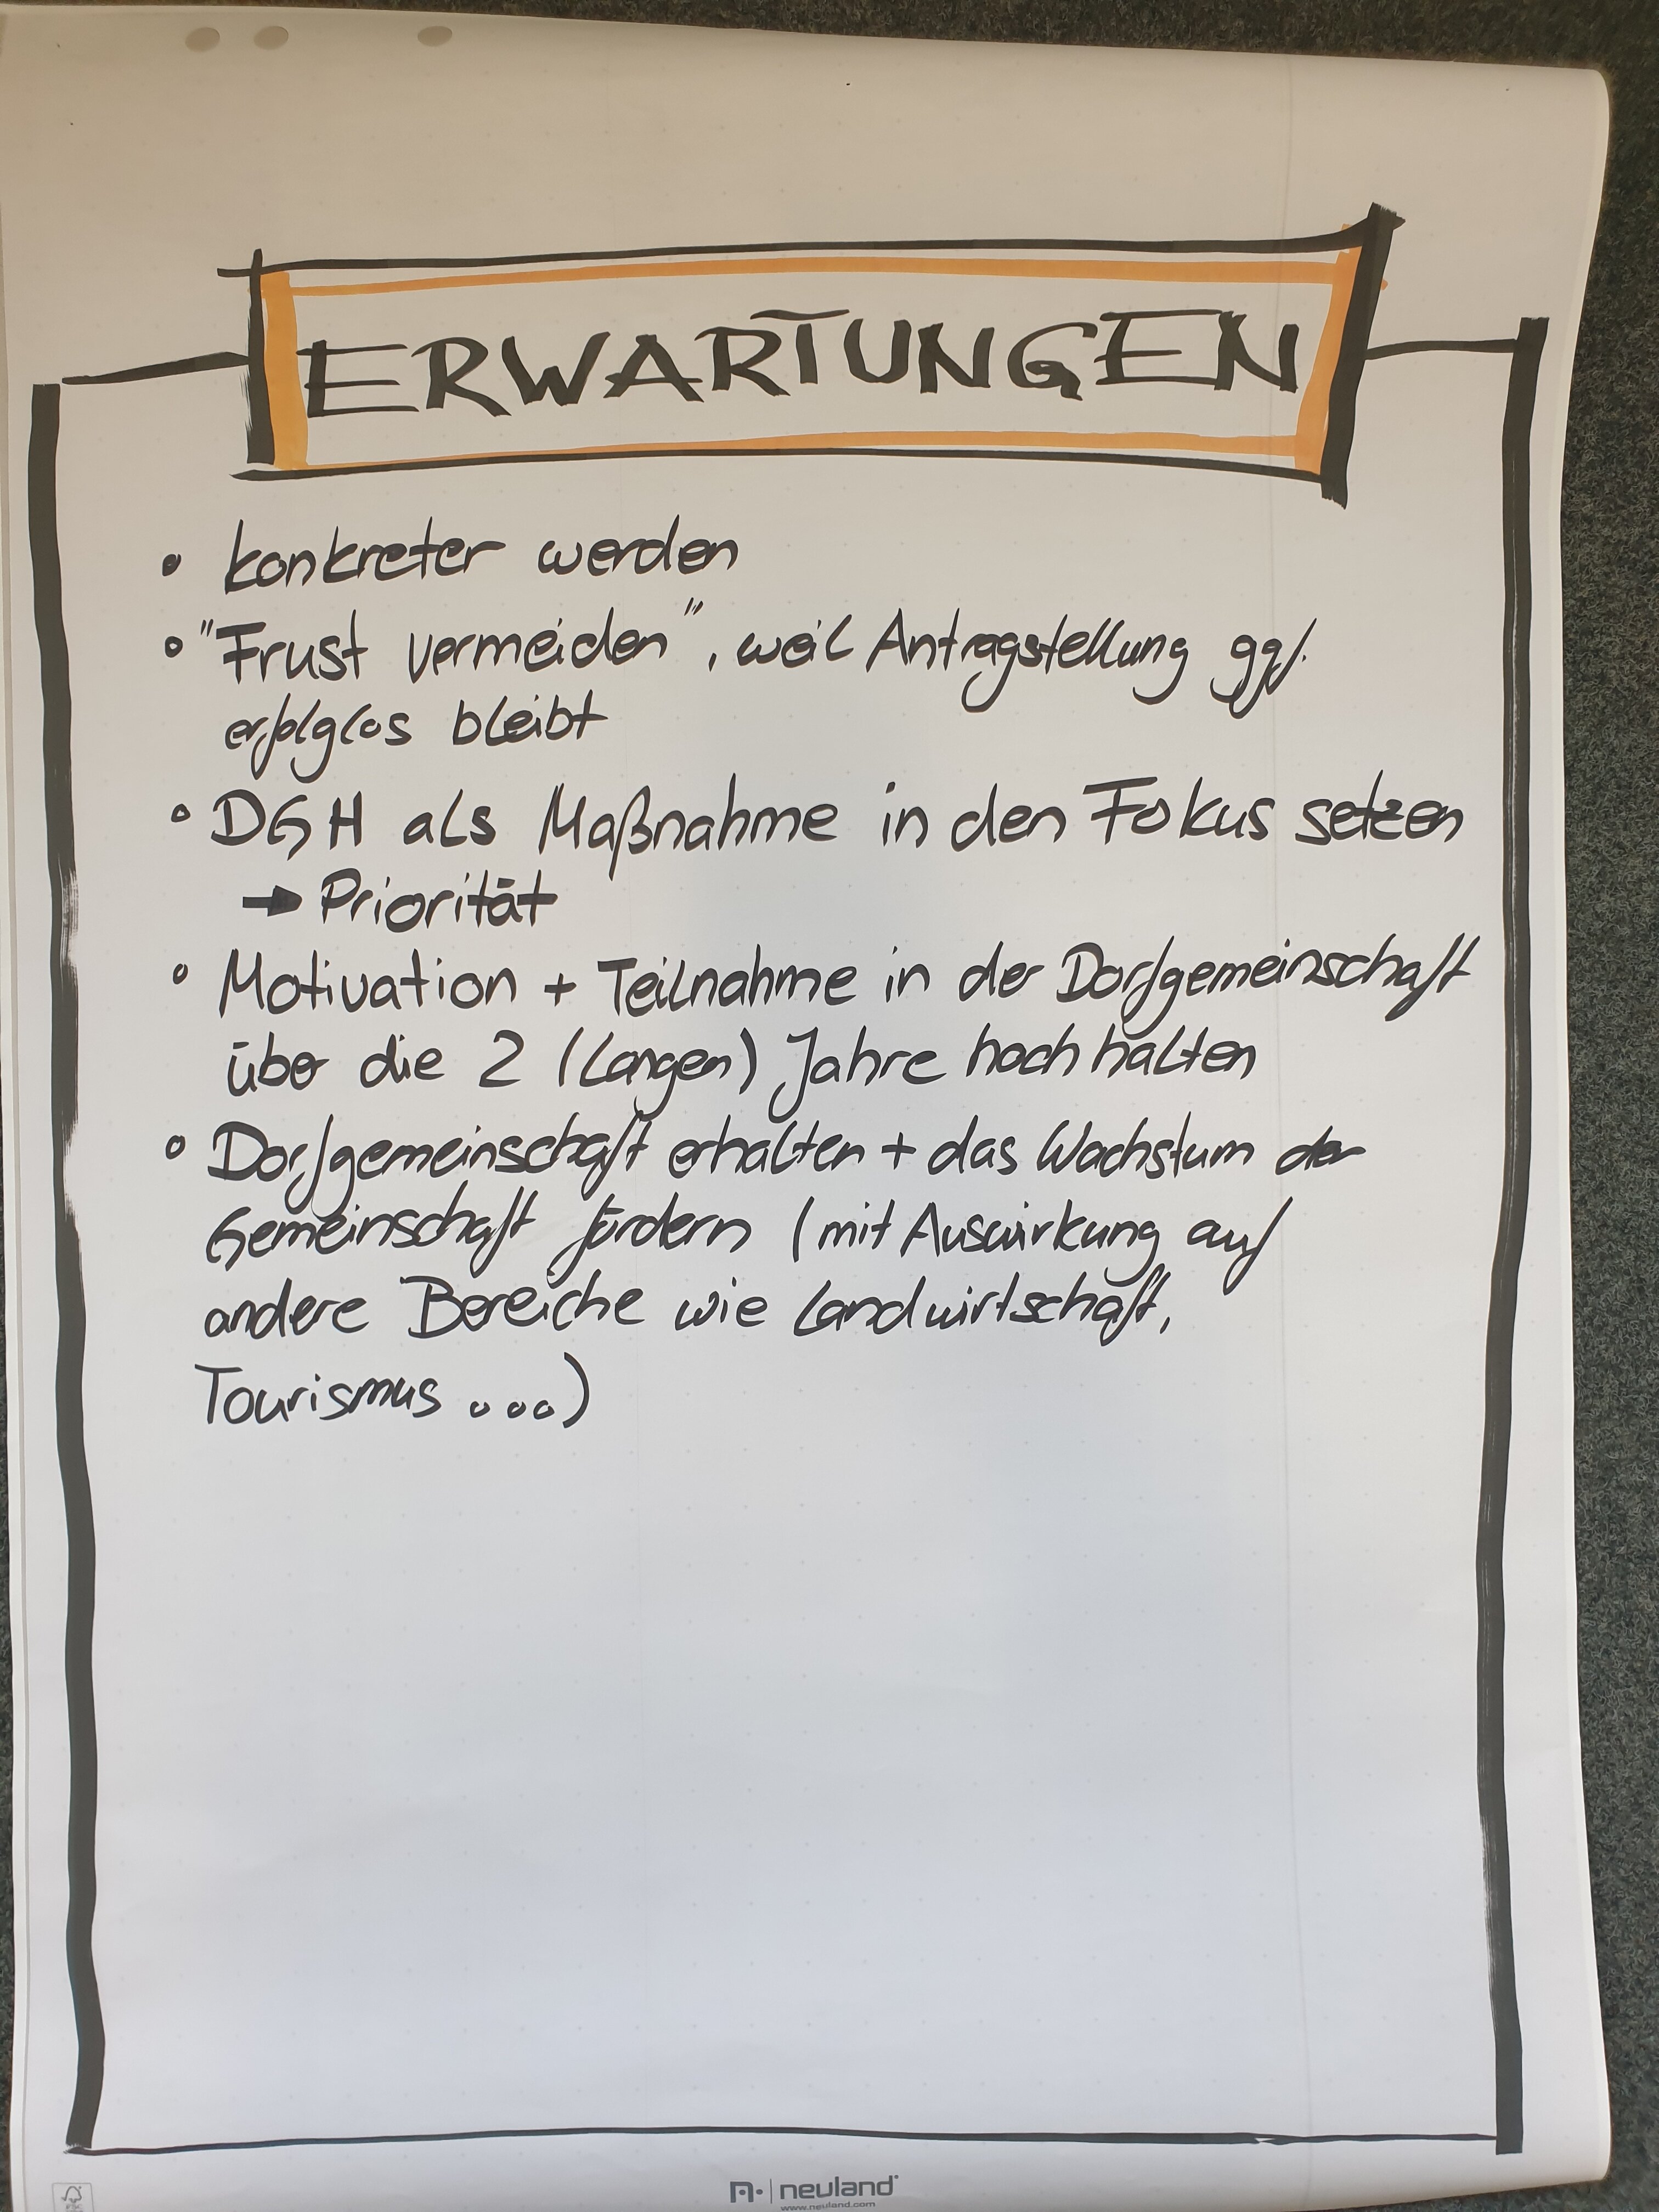 ERWARTUNGEN
• konkreter werden
• "Frust vermeiden", weil Antragstellung ggf.
erfolglos bleibt
• DGH als Maßnahme in den Fokus setzen
→ Priorität
• Motivation + Teilnahme in der Dorfgemeinschaft
über die 2 (langen) Jahre hoch halten
• Dorfgemeinschaft erhalten + das Wachstum der
Gemeinschaft fördern (mit Auswirkung auf
andere Bereiche wie Landwirtschaft,
Tourismus ...)
neuland
www.neuland.com